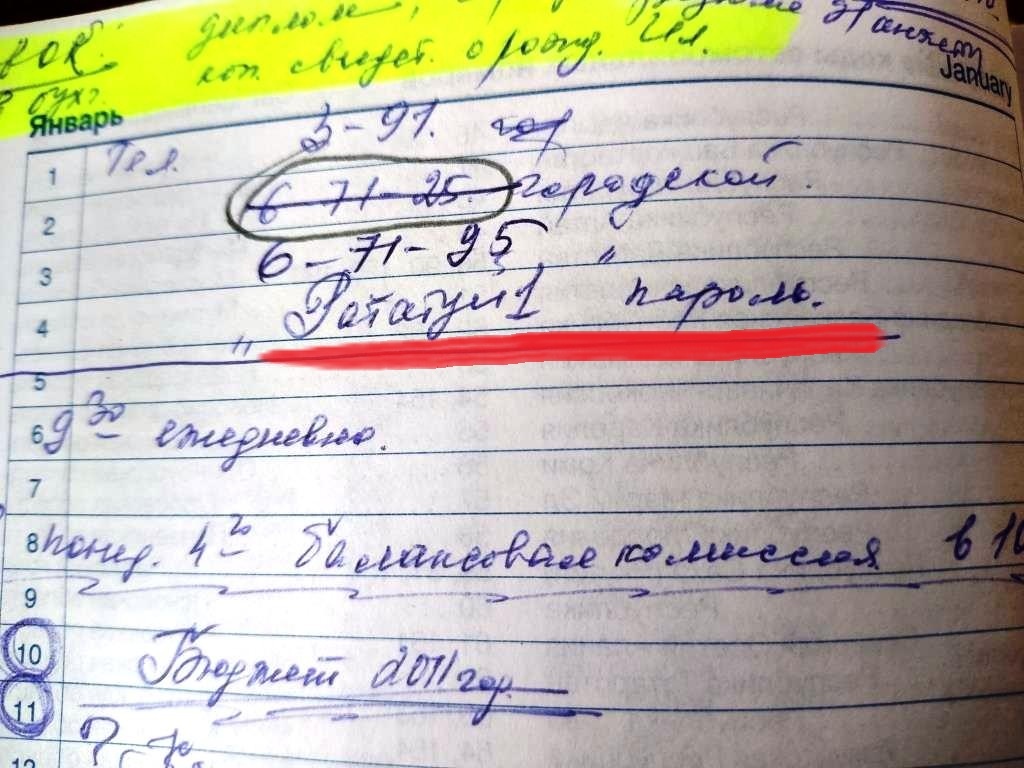 диплом,
анкеты
коп. свидет. о рожд. Ил.
бухг.
Январь
January
1 Тел. 3-91. гор
6 71-25. городской.
2
6-71-95 "
3
Рататуй1 пароль.
4
"
5
6 9 30 ежедневно.
7
8 понед. 4 го балансовая комиссия в 10
9
10 Бюджет 2011 год.
11
12